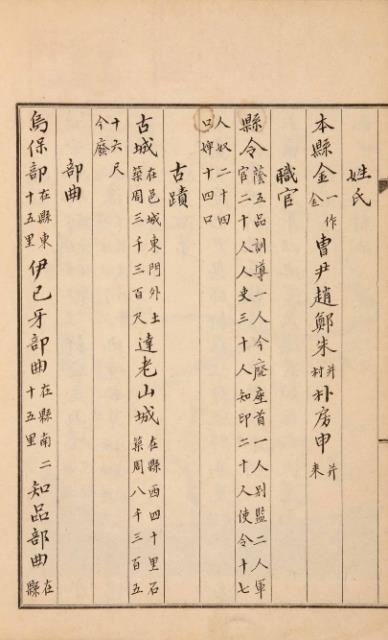 姓氏
本縣金一作仝曹尹趙鄭朱幷村朴房申幷来
職官
縣令蔭五品訓導一人今廢座首一人别監二人軍
官二十人人吏三十人知印二十人使令十七
人奴二十四
口婢十四口
古蹟
古城在邑城東門外土築周三千三百尺達老山城在縣西四十里石築周八千三百五
十六尺
今廢
部曲
烏保部在縣東十五里伊已牙部曲在縣南二十五里知品部曲在縣